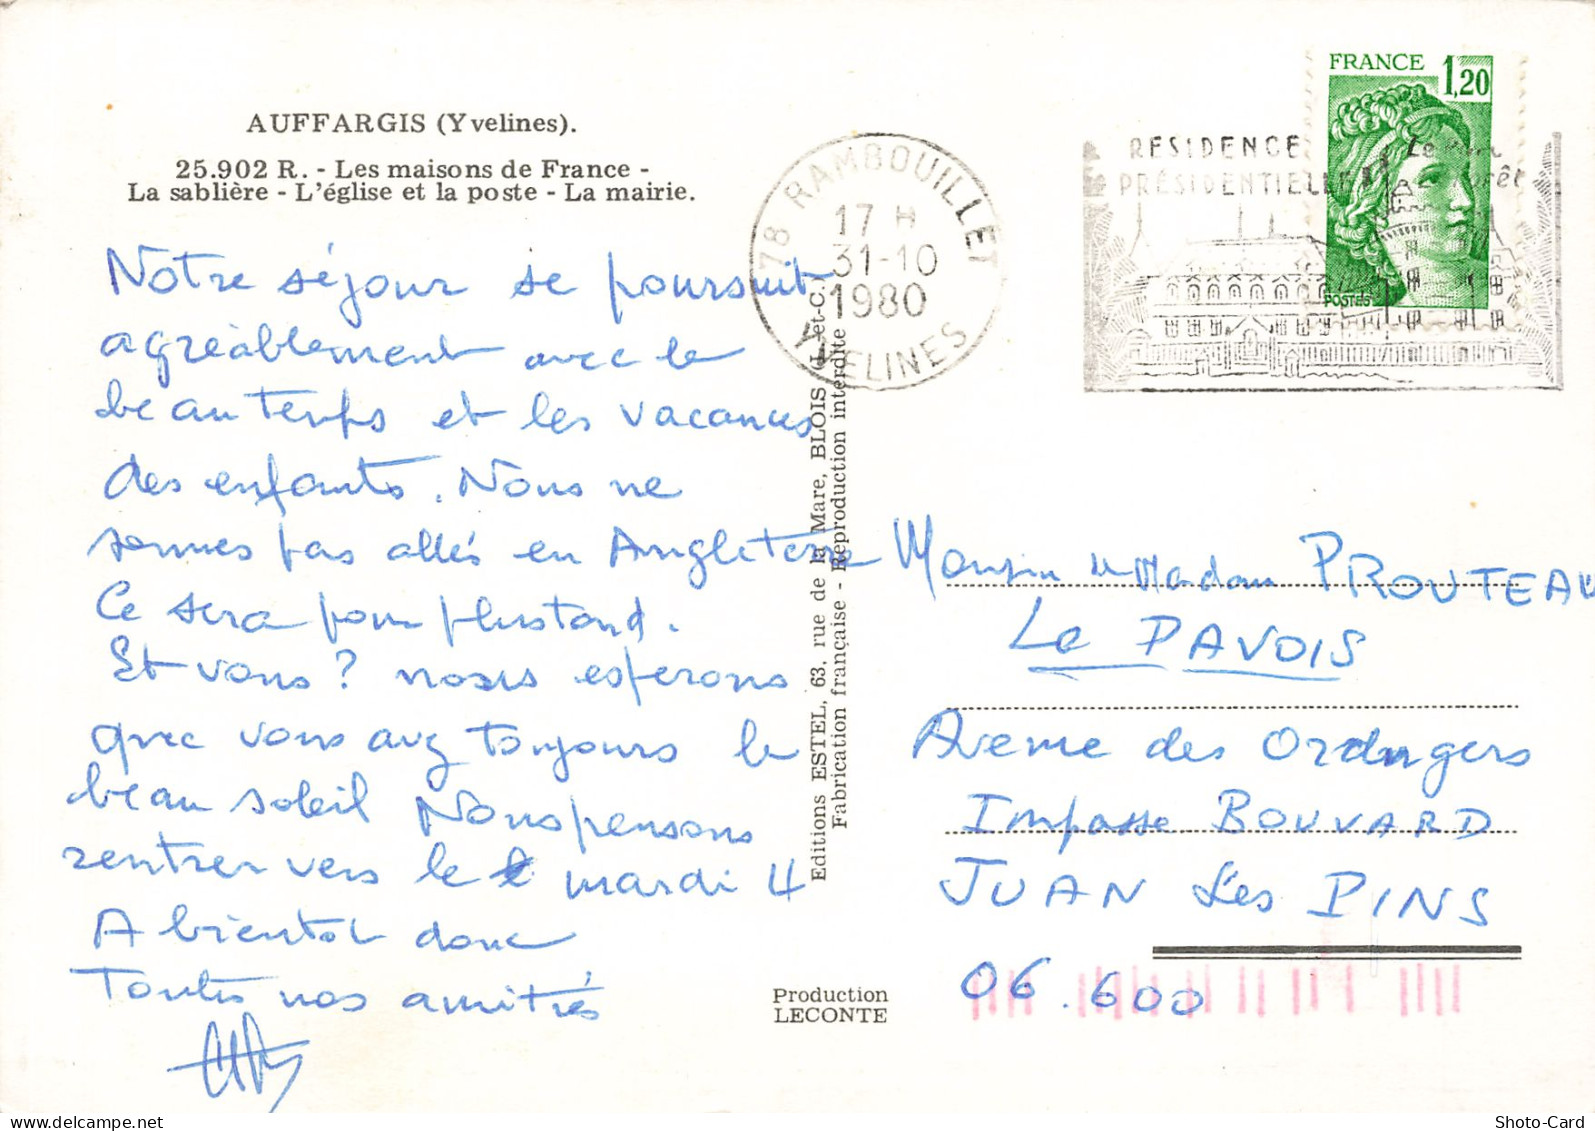 AUFFARGIS (Yvelines).
25.902 R. - Les maisons de France -
La sablière - L'église et la poste - La mairie.
Notre séjour se poursuit
agréablement avec le
beau temps et les vacances
des enfants. Nous ne
sommes pas allés en Angleterre
Ce sera pour plus tard.
Et vous ? nous espérons
que vous avez toujours le
beau soleil Nous pensons
rentrer vers le mardi 4
A bientot donc
Toutes nos amitiés
78 RAMBOUILLET
17 H
31-10
1980
YVELINES
RESIDENCE
PRÉSIDENTIELLE
FRANCE 1,20
POSTES
Editions ESTEL, 63, rue de la Mare, BLOIS (L.-et-C.)
Fabrication française - Reproduction interdite
Monsieur et Madame PROUTEAU
Le PAVOIS
Avenue des Orangers
Impasse BOUVARD
JUAN Les PINS
06.600
Production
LECONTE
Shoto-Card